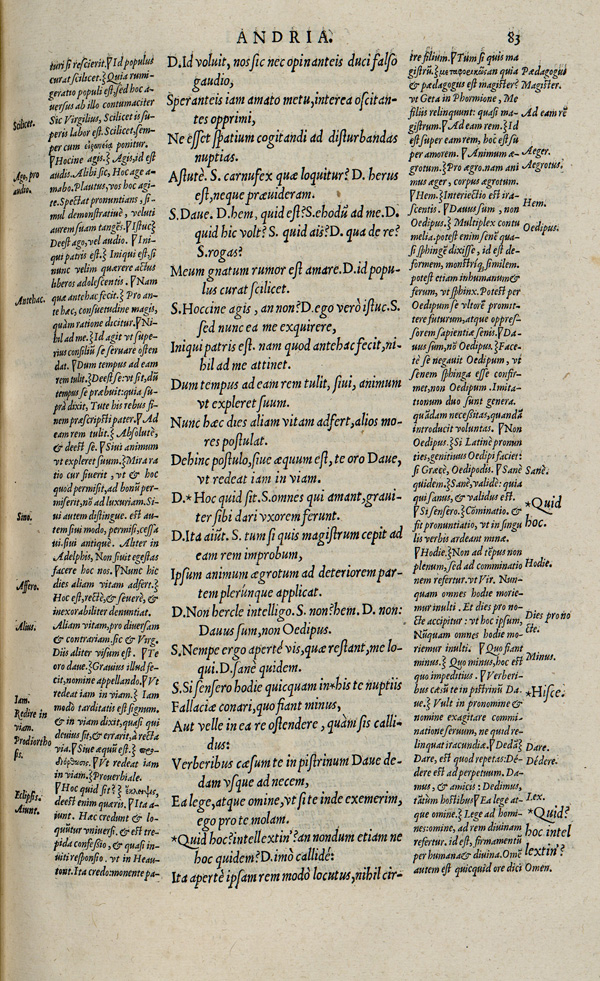 ANDRIA. 83
turi si rescierit. ¶Id populus
curat scilicet.} Quia rumi-
geratio populi est, sed hoc a-
uersus ab illo contumaciter
Sic Virgilius, Scilicet is su-
peris labor est. Scilicet, sem-
per cum ponitur.
¶Hocine agis.} Agis, id est
audis. Alibi sic, Hoc age a-
mabo. Plautus, vos hoc agi-
te. Spectat pronuntians, si-
mul demonstratiuè, veluti
aurem suam tangēs. ¶Istuc}
Deest ago, vel audio. ¶Ini-
qui patris est.} Iniqui est, si
nunc velim quærere actus
liberos adolescentis. ¶Nam
quæ antehac fecit.} Pro an-
te hàc, consuetudine magis,
quàm ratione dicitur. ¶Ni-
hil ad me.} Id agit vt supe-
rius consiliū se seruare osten
dat. ¶Dum tempus ad eam
rem tulit.} Deest se: vt sit, dū
tempus se præbuit: quia su-
prà dixit, Tute his rebus fi-
nem præscripsti pater. ¶Ad
eam rem tulit.} Absolutè,
& deest se. ¶Siui animum
vt expleret suum.} Mira ra
tio cur siuerit, vt & hoc
quod permisit, ad bonū per-
miserit, nō ad luxuriam. Si-
ui autem distingue. est au-
tem siui modo, permisi, cessa
ui. siui antiquè. Aliter in
Adelphis, Non siuit egestas
facere hoc nos. ¶Nunc hic
dies aliam vitam adfert.}
Hoc est, rectè, & seuerè, &
inexorabiliter denuntiat.
Aliam vitam, pro diuersam
& contrariam. sic & Virg.
Diis aliter visum est. ¶Te
oro daue.} Grauius illud se-
cit, nomine appellando. ¶Vt
redeat iam in viam.} Iam
modo tarditati est signum,
& in viam dixit, quasi qui
deuius sit, & errarit, à recta
via. ¶Siue æquū est.}
¶Vt redeat iam
in viam.} Prouerbiale.
¶Hoc quid sit?}
deest enim quaris. ¶Ita a-
iunt. Hac credunt & lo-
quūtur vniuersi. & est tre-
pida confessio, & quasi in-
uiti responsio. vt in Heau-
tont. Ita credo: monente pa-
Scilicet.
Ago, pro
audio.
Antehac.
Sino.
Affero.
Alius.
Iam.
Redire in
viam.
Prodiortho
sis.
Eclipsis.
Aiunt.
D. Id voluit, nos sic nec opinanteis duci falso
gaudio,
Speranteis iam amato metu, interea oscitan-
tes opprimi,
Ne esset spatium cogitandi ad disturbandas
nuptias.
Astutè. S. carnufex quæ loquitur? D. herus
est, neque præuideram.
S. Daue. D. hem, quid est? S. ehodū ad me. D.
quid hic volt? S. quid ais? D. qua de re?
S. rogas?
Meum gnatum rumor est amare. D. id popu-
lus curat scilicet.
S. Hoccine agis, an non? D. ego verò istuc. S.
sed nunc ea me exquirere,
Iniqui patris est. nam quod antehac fecit, ni-
hil ad me attinet.
Dum tempus ad eam rem tulit, siui, animum
vt expleret suum.
Nunc hæc dies aliam vitam adfert, alios mo-
res postulat.
Dehinc postulo, siue æquum est, te oro Daue,
vt redeat iam in viam.
D.* Hoc quid sit. S. omnes qui amant, graui-
ter sibi dari vxorem ferunt.
D. Ita aiūt. S. tum si quis magistrum cepit ad
eam rem improbum,
Ipsum animum ægrotum ad deteriorem par-
tem plerúnque applicat.
D. Non hercle intelligo. S. non? hem. D. non:
Dauus sum, non Oedipus.
S. Nempe ergo apertè vis, quæ restant, me lo-
qui. D. sanè quidem.
S. Si sensero hodie quicquam in*his te nuptiis
Fallaciæ conari, quo fiant minus,
Aut velle in ea re ostendere, quàm sis calli-
dus:
Verberibus cæsum te in pistrinum Daue de-
dam vsque ad necem,
Ea lege, atque omine, vt si te inde exemerim,
ego pro te molam.
*Quid hoc? intellextin'? an nondum etiam ne
hoc quidem? D. imò callidè:
Ita apertè ipsam rem modò locutus, nihil cir-
ire filium. ¶Tum si quis ma
gistrū.} quia
& pædagogus est magister?
vt Geta in Phormione, Me
filiis relinquunt: quasi ma-
gistrum. ¶Ad eam rem.} Id
est super eam rem, hoc est su
per amorem. ¶Animum æ-
grotum.} Pro ægro. nam ani
mus æger, corpus ægrotum.
¶Hem.} Interiectio est ira-
scentis. ¶Dauus sum, non
Oedipus.} Multiplex contu
melia. potest enim senē qua-
si sphingē dixisse, id est de-
formem, monstríq; similem.
potest etiam inhumanum &
ferum, vt sphinx. Potest per
Oedipum se vltorē promit-
tere futurum, atque oppres-
sorem sapientiæ senis. ¶Da-
uus sum, nō Oedipus.} Face-
tè se negauit Oedipum, vt
senem sphinga esse confir-
met, non Oedipum. Imita-
tionum duo sunt genera.
quædam necessitas, quandā
introducit voluntas. ¶Non
Oedipus.} Si Latinè pronun
ties, genitiuus Oedipi facier:
si Græcè, Oedipodis. ¶Sanè
quidem.} Sanè, validè: quia
qui sanus, & validus est.
¶Si sensero.} Cōminatio, &
sit pronuntiatio, vt in singu
lis verbis ardeant minæ.
¶Hodie.} Non ad tēpus non
plenum, sed ad comminatio
nem refertur. vt Vir. Nun-
quam omnes hodie morie-
mur inulti. Et dies pro no-
cte accipitur: vt hoc ipsum,
Nūquam omnes hodie mo-
riemur inulti. ¶Quo fiant
minus.} Quo minus, hoc est
quo impeditius. ¶Verberi-
bus cæsū te in pistrinū Da-
ue.} Vult in pronomine &
nomine exagitare commi-
nationes suum, ne quid re-
linquat iracundiæ. ¶Dedā}
Dare, est quod repetas: De-
dere est ad perpetuum. Da-
mus, & amicis: Dedimus,
tātùm hostibus ¶Ea lege at-
que omine.} Lege ad homi-
nes: omine, ad rem diuinam
refertur. id est, firmamentū
per humana & diuina. Omē
autem est quicquid ore dici
Pædagogus
Magister.
Ad eam rē
Æger.
Ægrotus.
Hem.
Oedipus.
Sanè.
*Quid
hoc.
Hodie.
Dies pro no
cte.
Minus.
*Hisce.
Dare.
Dédere.
Lex.
*Quid?
hoc intel
lextin'?
Omen.